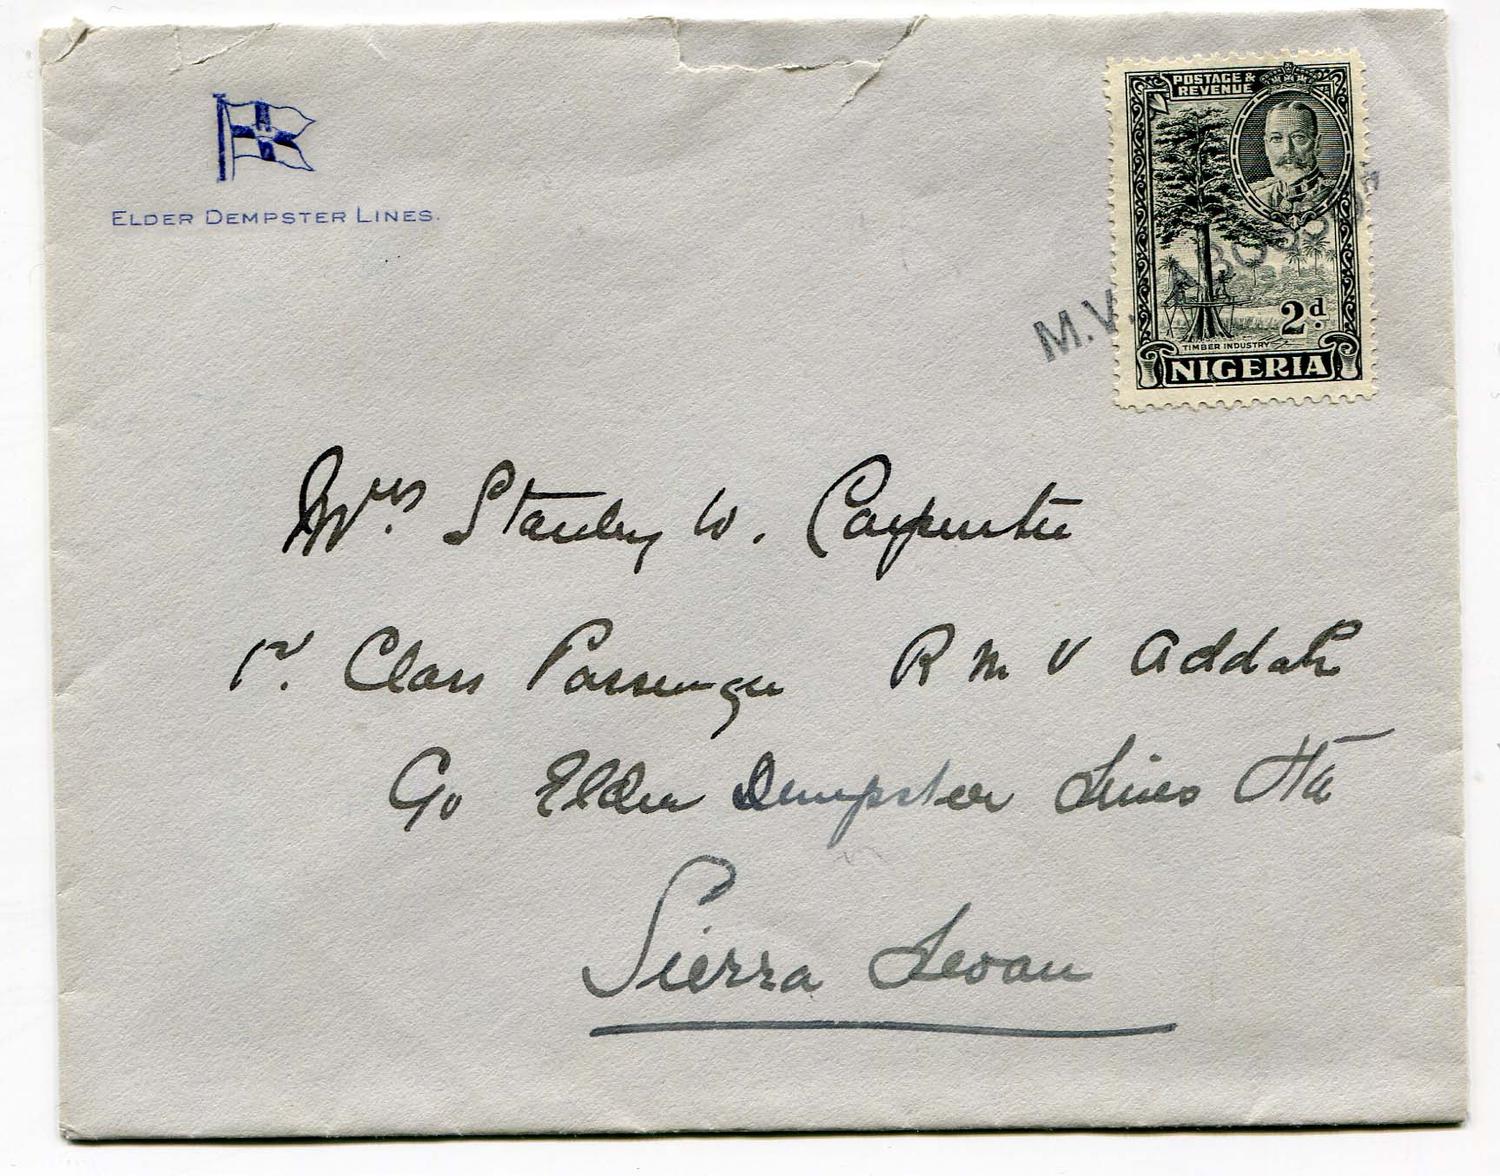 ELDER DEMPSTER LINES.
POSTAGE &
REVENUE
M.V. ABOSSO
2d.
TIMBER INDUSTRY
NIGERIA
Mrs. Stanley W. Carpenter
1st. Class Passenger R M V Addah
C/o Elder Dempster Lines Ltd
Sierra Leoan